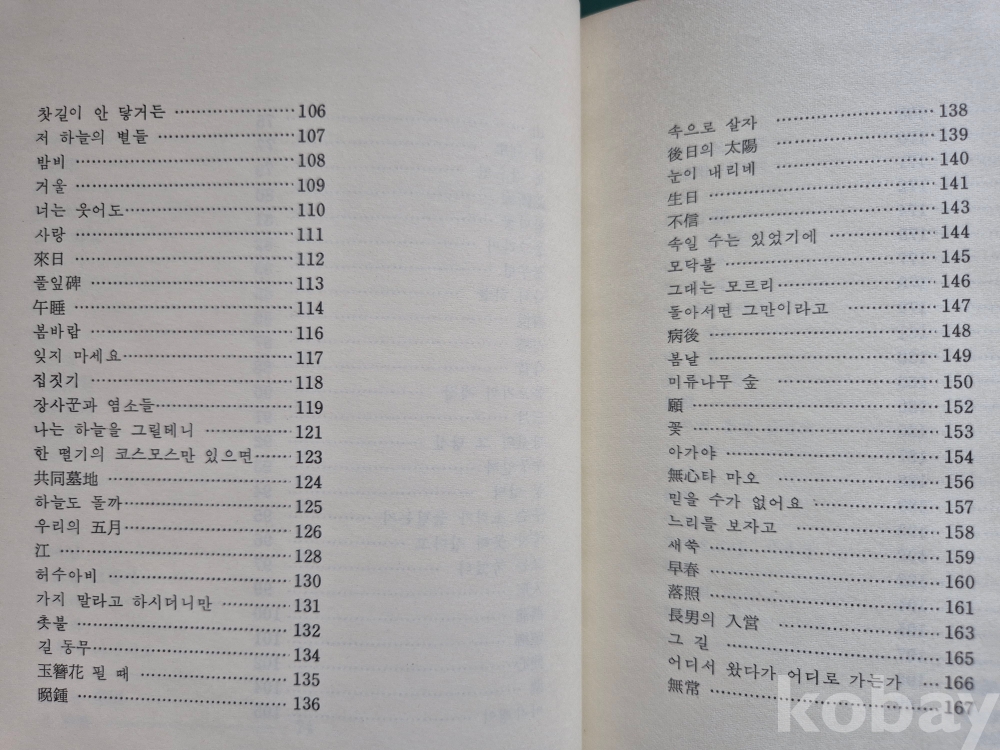 찻길이 안 닿거든 ························ 106
저 하늘의 별들 ························ 107
밤비 ························ 108
거울 ························ 109
너는 웃어도 ························ 110
사랑 ························ 111
來日 ························ 112
풀잎碑 ························ 113
午睡 ························ 114
봄바람 ························ 116
잊지 마세요 ························ 117
집짓기 ························ 118
장사꾼과 염소들 ························ 119
나는 하늘을 그릴테니 ························ 121
한 떨기의 코스모스만 있으면 ······ 123
共同墓地 ························ 124
하늘도 돌까 ························ 125
우리의 五月 ························ 126
江 ························ 128
허수아비 ························ 130
가지 말라고 하시더니만 ············ 131
촛불 ························ 132
길 동무 ························ 134
玉簪花 필 때 ························ 135
晩鍾 ························ 136
속으로 살자 ························ 138
後日의 太陽 ························ 139
눈이 내리네 ························ 140
生日 ························ 141
不信 ························ 143
속일 수는 있었기에 ············ 144
모닥불 ························ 145
그대는 모르리 ························ 146
돌아서면 그만이라고 ············ 147
病後 ························ 148
봄날 ························ 149
미류나무 숲 ························ 150
願 ························ 152
꽃 ························ 153
아가야 ························ 154
無心타 마오 ························ 156
믿을 수가 없어요 ············ 157
느리를 보자고 ························ 158
새쑥 ························ 159
早春 ························ 160
落照 ························ 161
長男의 入営 ························ 163
그 길 ························ 165
어디서 왔다가 어디로 가는가 ··· 166
無常 ························ 167
kobay